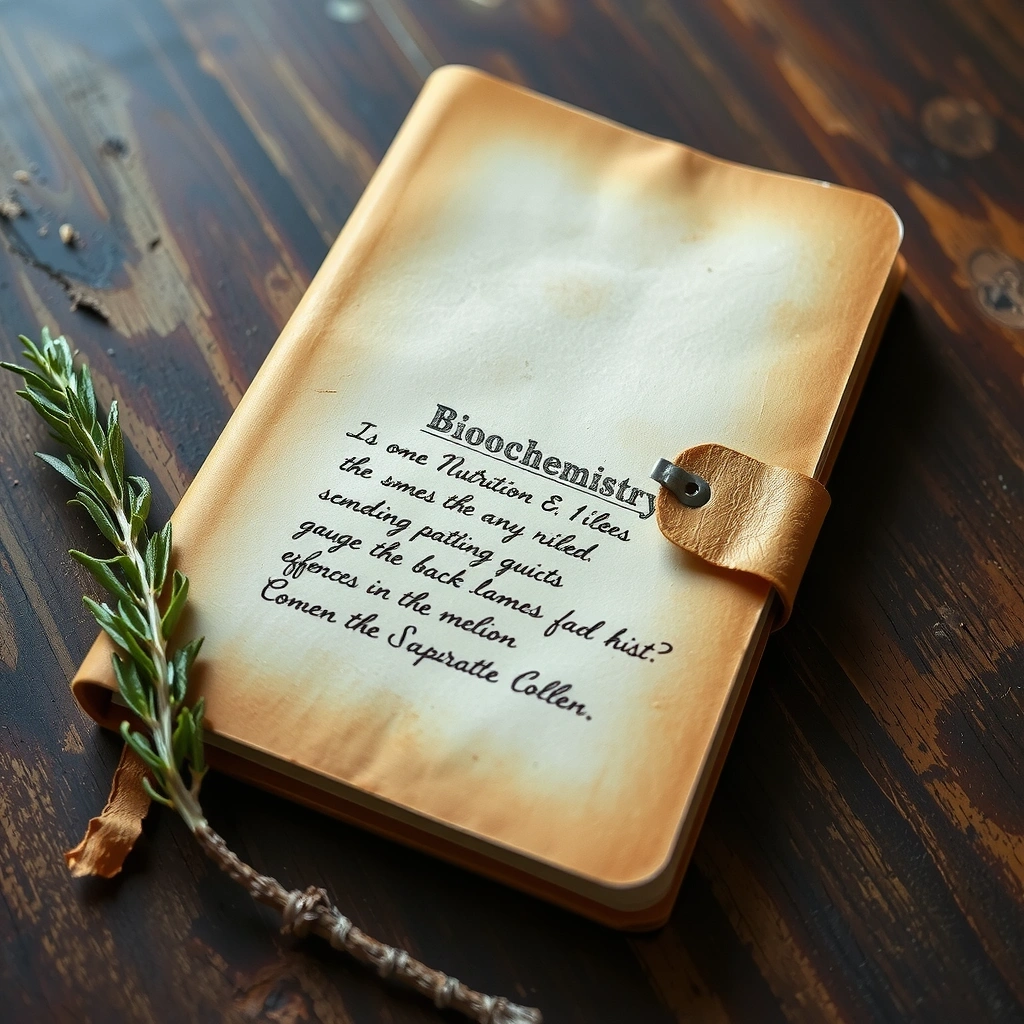 Bioochemistry
Is one Nutrition & 1ilees
the smes the any niled.
sending patting guicts
gauge the back lames fad hist?
effences in the melion
Comen the Sapiratte Collen.